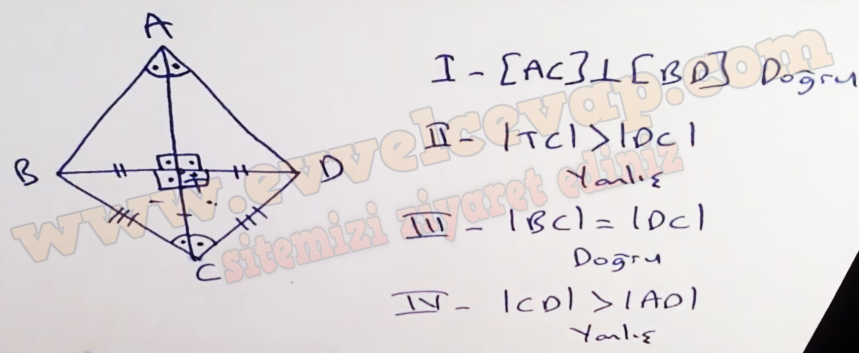 A
B
D
T
C
I - [AC] ⊥ [BD] Doğru
II - |TC| > |DC|
Yanlış
III - |BC| = |DC|
Doğru
IV - |CD| > |AD|
Yanlış
www.evvelcevap.com
sitemizi ziyaret ediniz